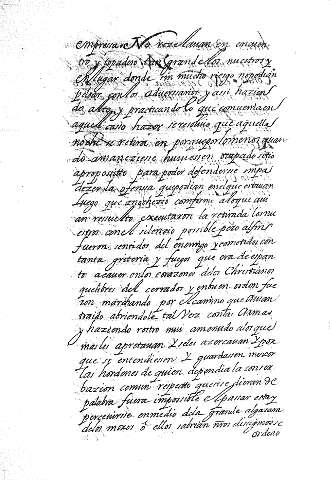 empresa No rezelauan en enquen
tro y topadero tan grande los nuestros y
en lugar donde sin mucho riesgo no podian
pelear con los aduersarios y assi hazien
do alto y practicando lo que conuenia en
aquel caso hazer se resoluio que aquella
noche se retira en para que por lo menos quan
do amaneziesse huuiessen ocupado sitio
aproposito para poder defenderse impa
dezer la ofensa que podian en el que estauan
luego que anochezio conforme a lo que aui
an resuelto executaron la retirada los nu
estros con el silencio posible pero al fin
fueron sentidos del enemigo y cometidos con
tanta griteria y fuego que era de espan
to a cauar en los corazones de los Christianos
quel de el cerrador y en buen orden fue
ron marchando por el camino que auian
traido abriendole tal vez con las Armas
y haziendo rostro muy amenudo a los que
mas les apretauan y se les acercauan y por
que se entendiessen y guardassen mejor
las hordenes de quien dependia la conser
bazion comun respecto que si se dieran de
palabra fuera imposible el passar estas y
perceuirse en medio de la grande algazara
de los moros o ellos sabrian nros designios se
ordeno